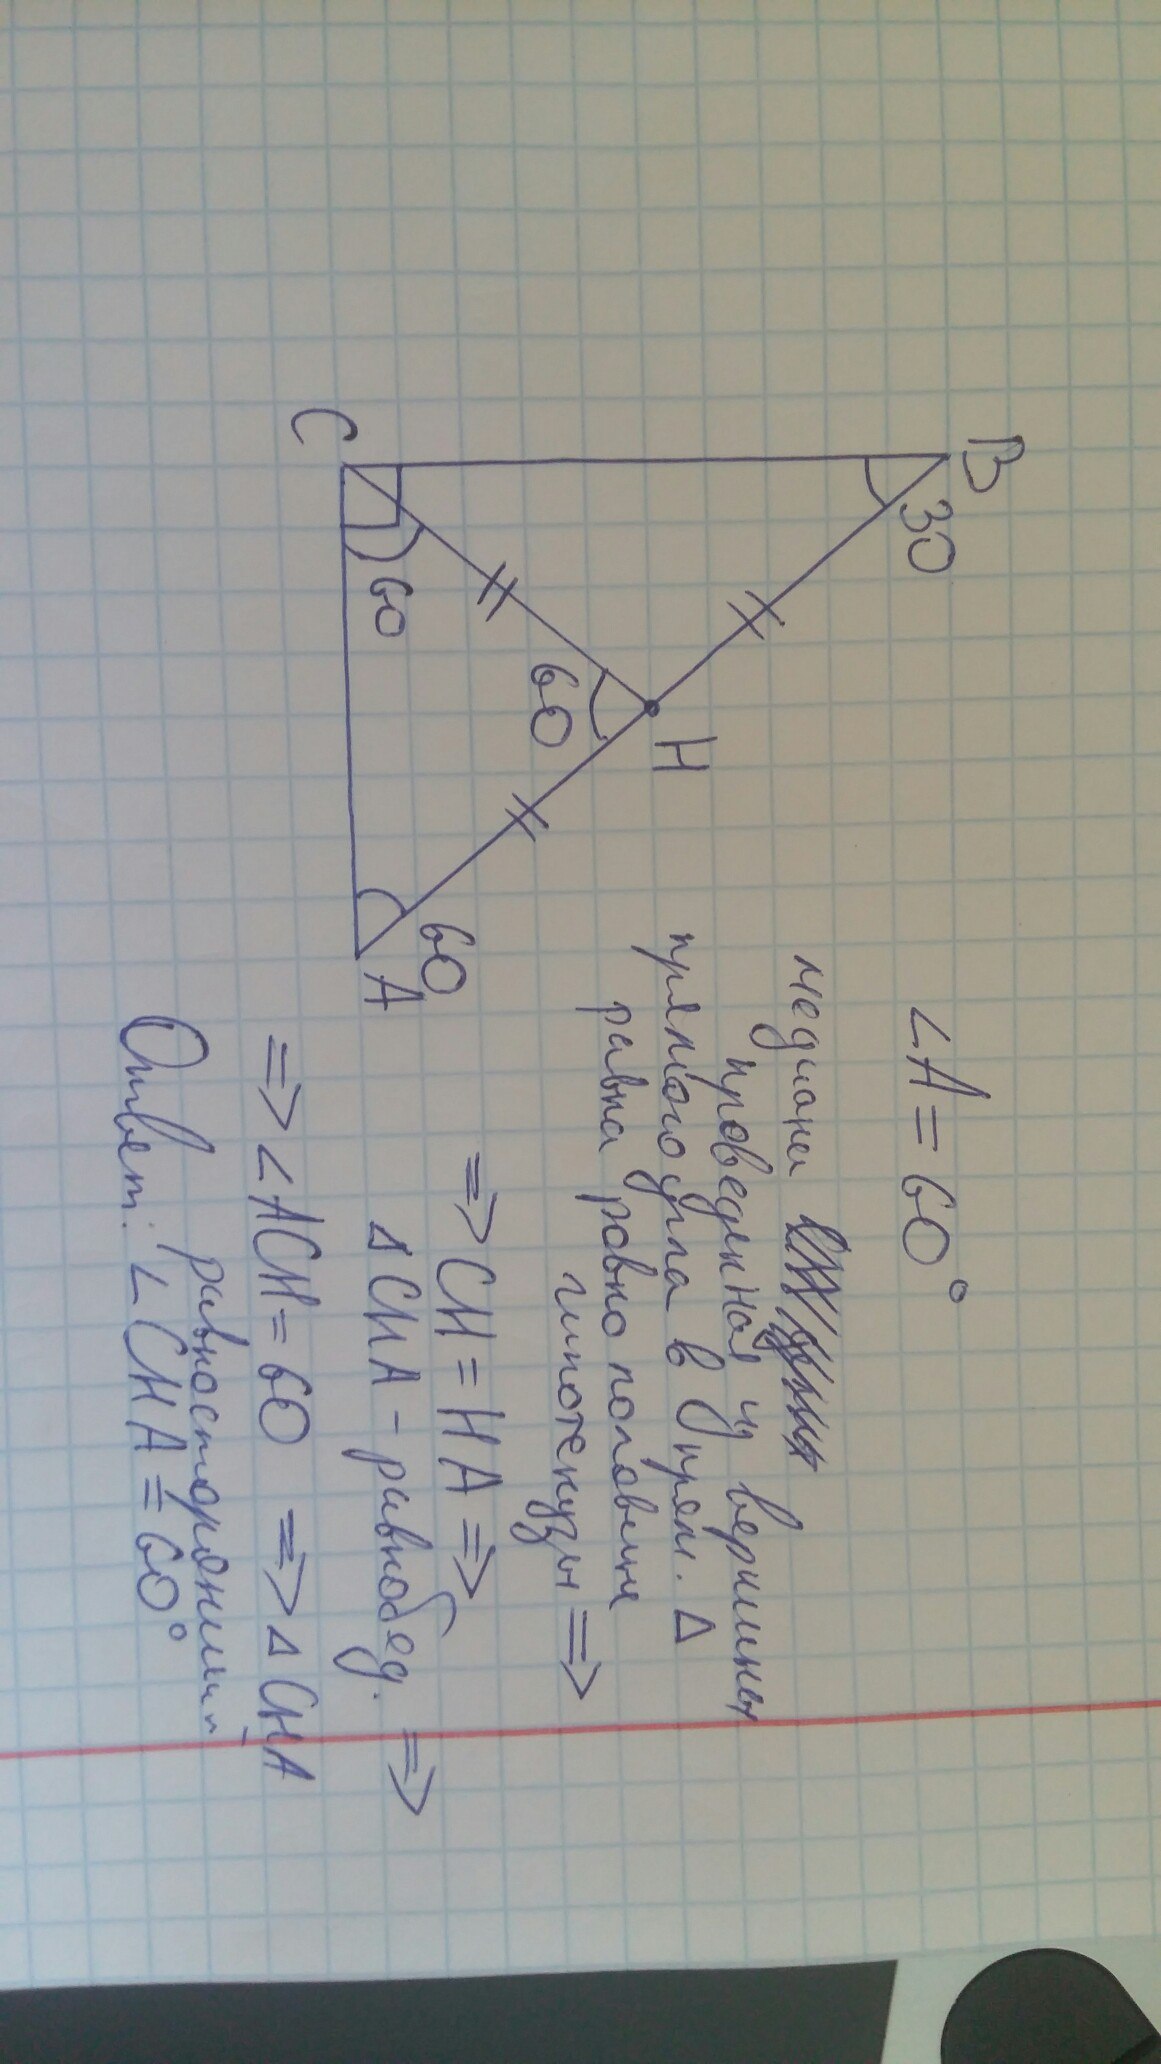 B
30
H
60
C
60
60
A
<A = 60°
медиана
проведенная из вершины
прямого угла в прям. Δ
равна ровно половине
гипотенузы =>
=> CH = HA =>
Δ CHA - равнобед. =>
=> <ACH = 60 => Δ CHA
равносторонний
Ответ: <CHA = 60°